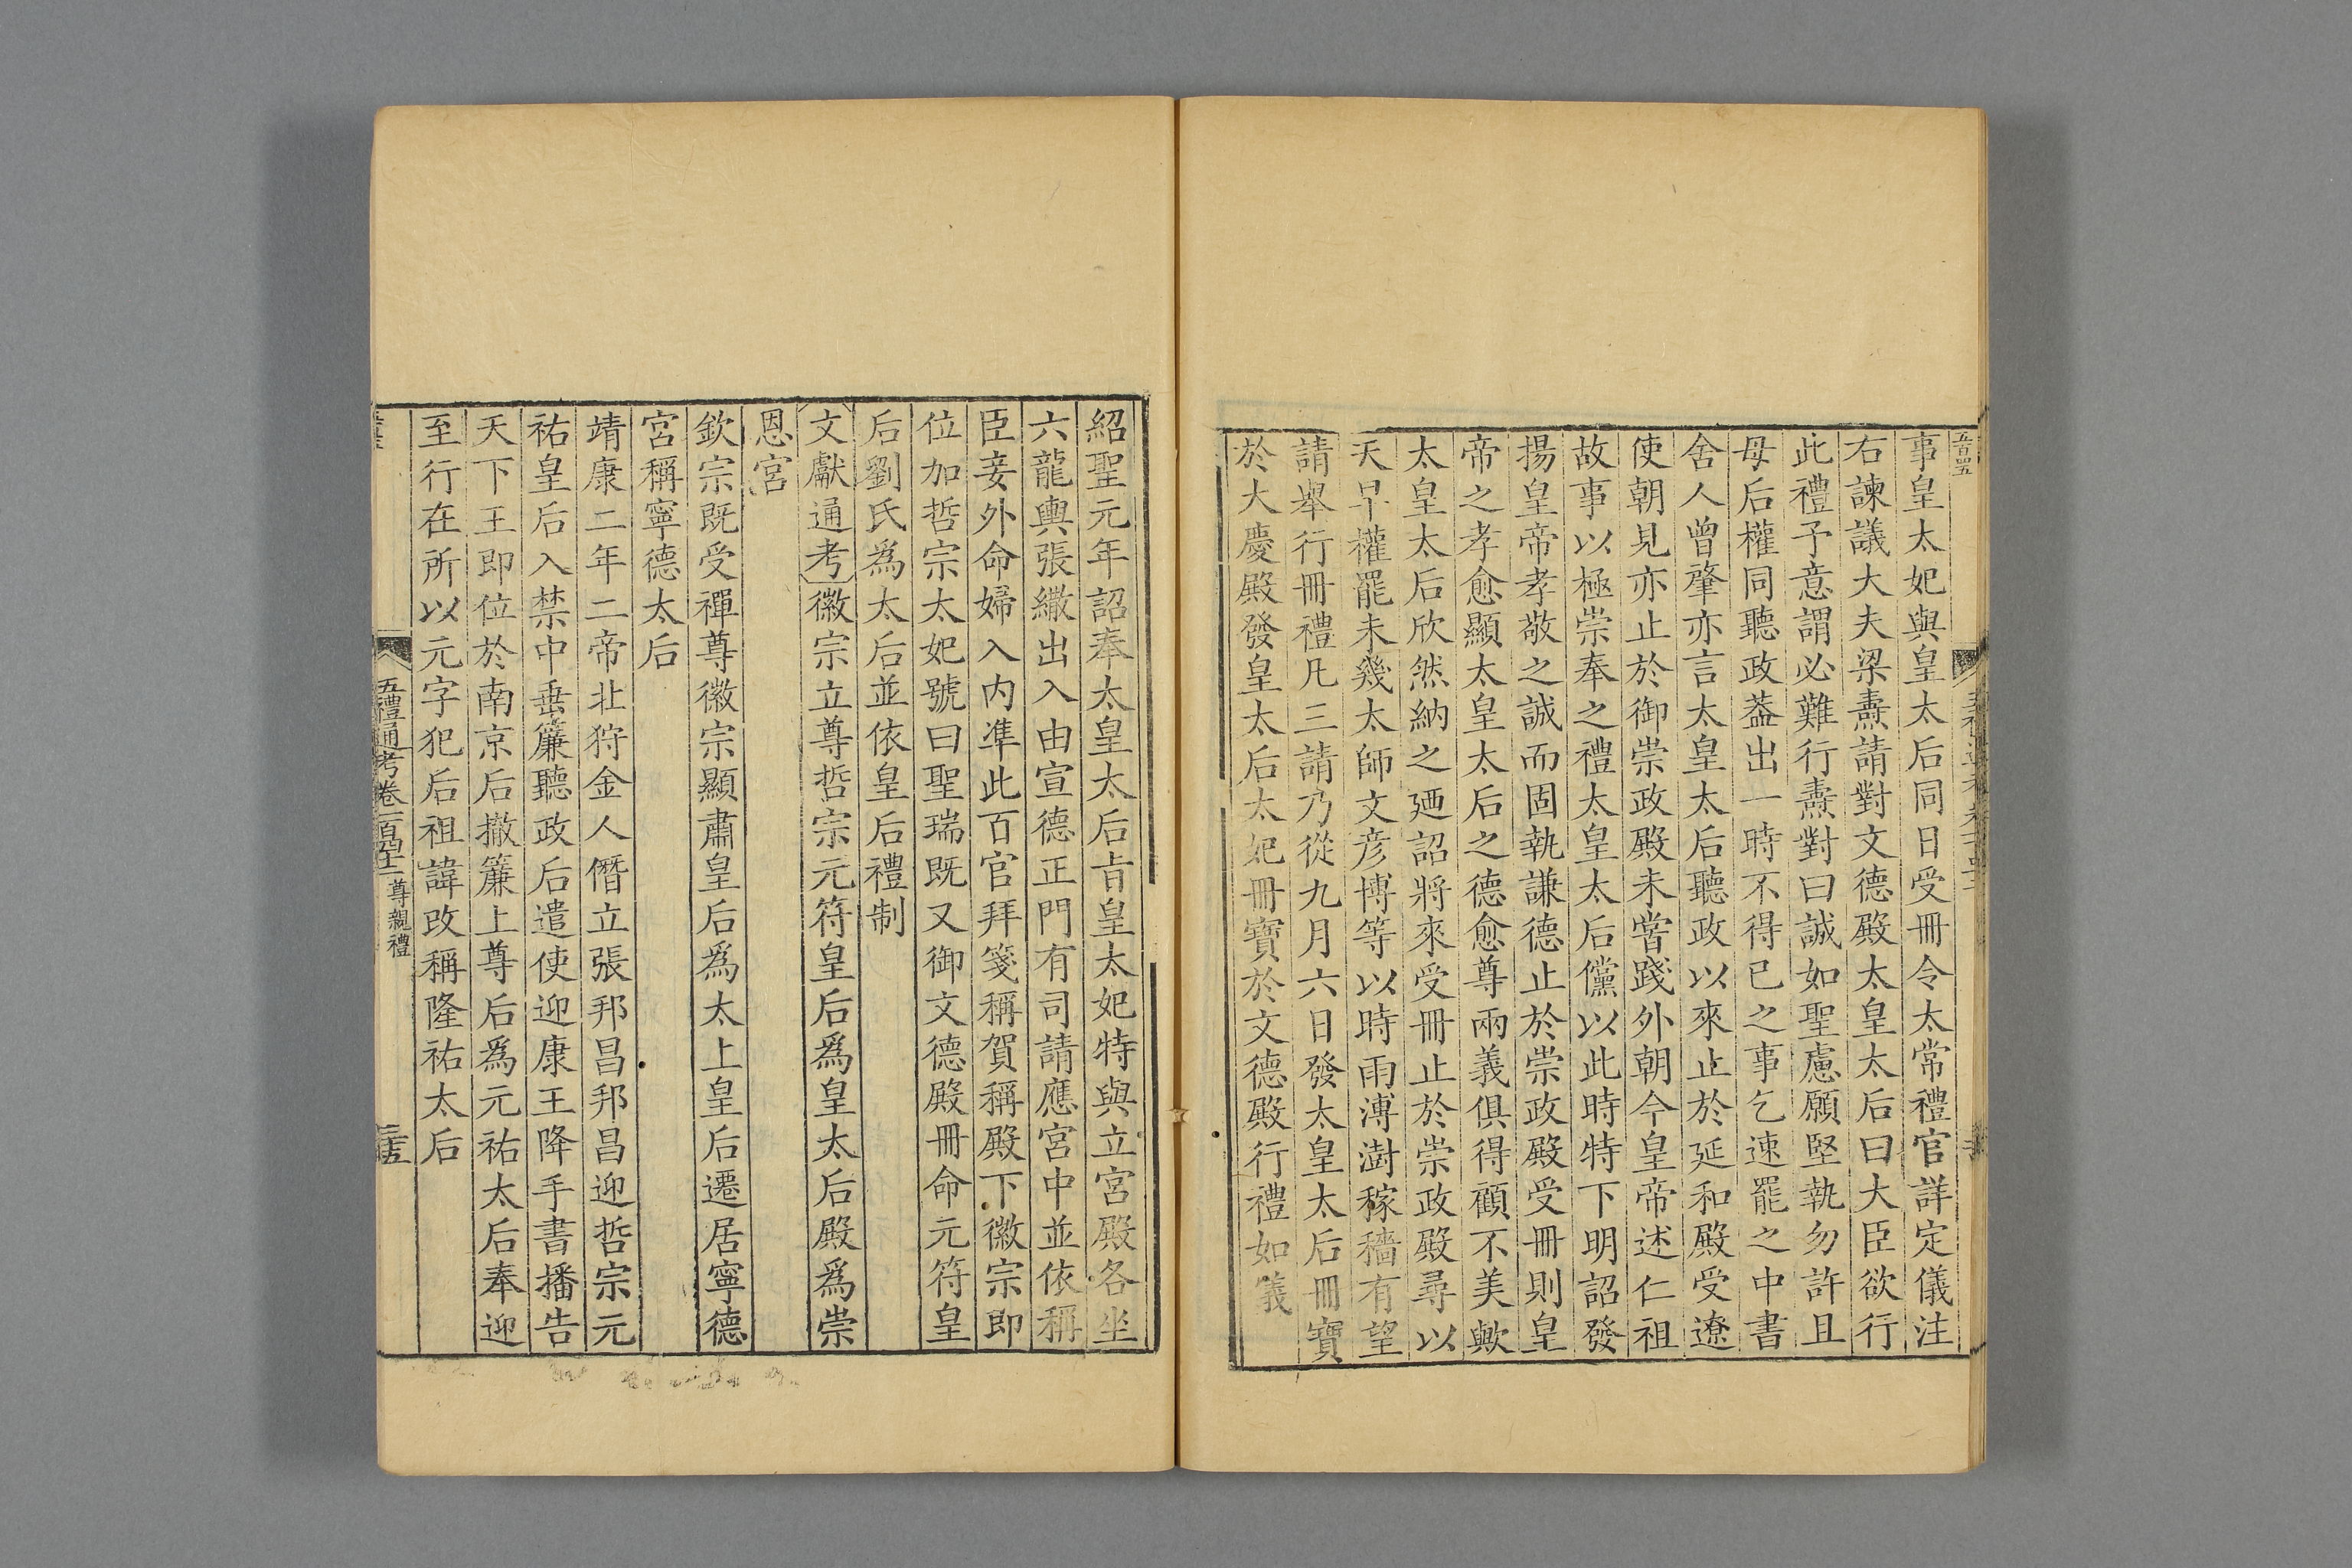 事皇太妃與皇太后同日受冊令太常禮官詳定儀注
右諫議大夫梁燾請對文德殿太皇太后曰大臣欲行
此禮予意謂必難行燾對曰誠如聖慮願堅執勿許且
母后權同聽政葢出一時不得已之事乞速罷之中書
舍人曾肇亦言太皇太后聽政以來止於延和殿受遼
使朝見亦止於御崇政殿未嘗踐外朝今皇帝述仁祖
故事以極崇奉之禮太皇太后儻以此時特下明詔發
揚皇帝孝敬之誠而固執謙德止於崇政殿受冊則皇
帝之孝愈顯太皇太后之德愈尊兩義俱得顧不美歟
太皇太后欣然納之廼詔將來受冊止於崇政殿尋以
天旱權罷未幾太師文彦博等以時雨溥澍稼穡有望
請舉行冊禮凡三請乃從九月六日發太皇太后冊寶
於大慶殿發皇太后太妃冊寶於文德殿行禮如儀
紹聖元年詔奉太皇太后㫖皇太妃特與立宮殿各坐
六龍輿張繖出入由宣德正門有司請應宮中並依稱
臣妾外命婦入内凖此百官拜箋稱賀稱殿下徽宗即
位加哲宗太妃號曰聖瑞既又御文德殿冊命元符皇
后劉氏爲太后並依皇后禮制
文獻通考徽宗立尊哲宗元符皇后爲皇太后殿爲崇
恩宮
欽宗既受禪尊徽宗顯肅皇后爲太上皇后遷居寧德
宮稱寧德太后
靖康二年二帝北狩金人僭立張邦昌邦昌迎哲宗元
祐皇后入禁中垂簾聽政后遣使迎康王降手書播告
天下王即位於南京后撤簾上尊后爲元祐太后奉迎
至行在所以元字犯后祖諱改稱隆祐太后
五禮通考卷一百四十二 尊親禮